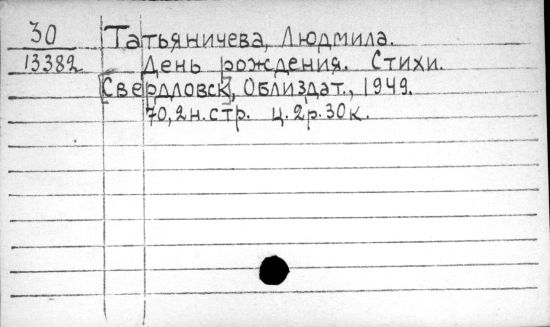 30 Татьяничева, Людмила.
13382 День рождения. Стихи.
[Свердловск], Облиздат., 1949.
70,2н.стр. ц.2р.30к.